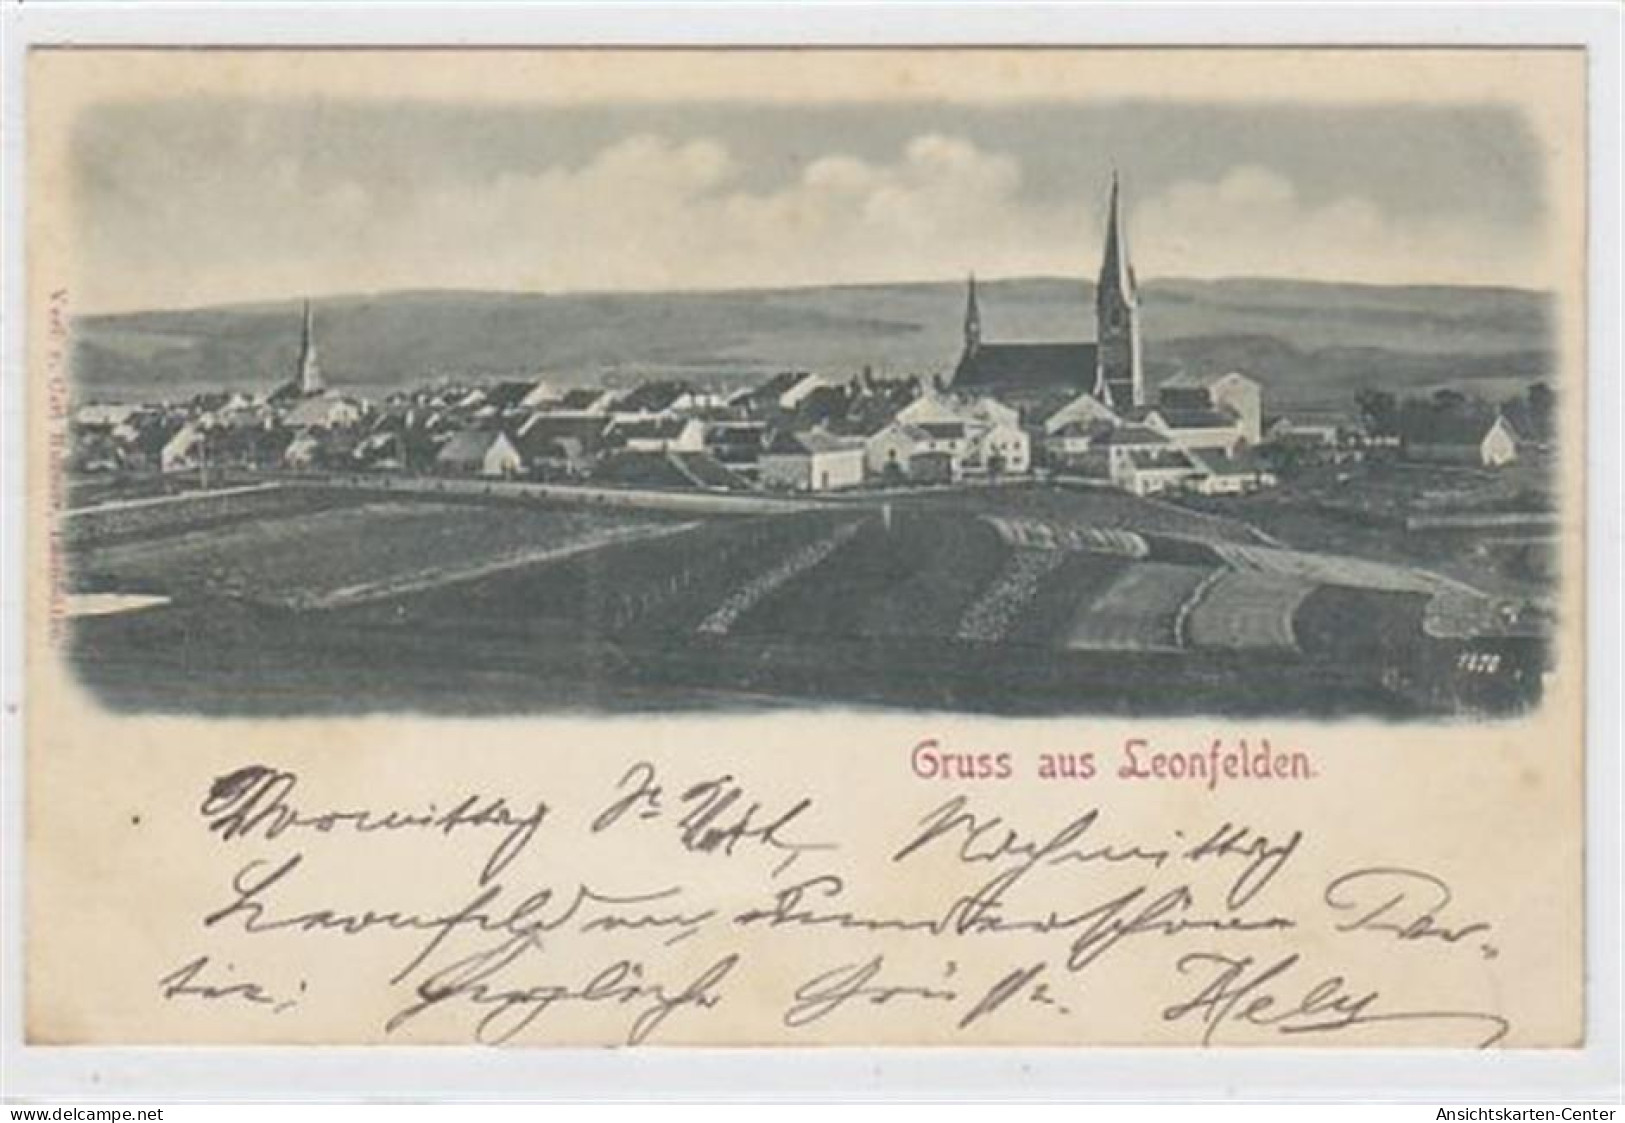 Gruss aus Leonfelden.
Vormittag St. Veit, Nachmittag
Leonfelden, Wunderschöne Par-
tie; Herzliche Grüße. Hely
1870
delcampe.net
Ansichtskarten-Center